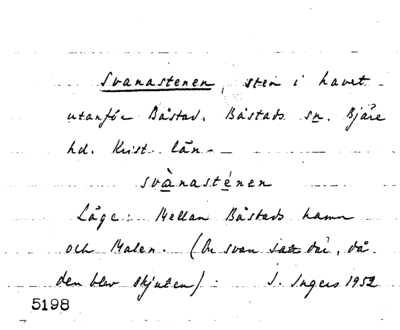 Svanastenen, sten i havet
utanför Båstad. Båstads sn. Bjäre
hd. Krist. län -
svànasténen
Läge: Mellan Båstads hamn
och Malen. (En svan satt där, då
den blev skjuten). J. Ingers 1952
5198